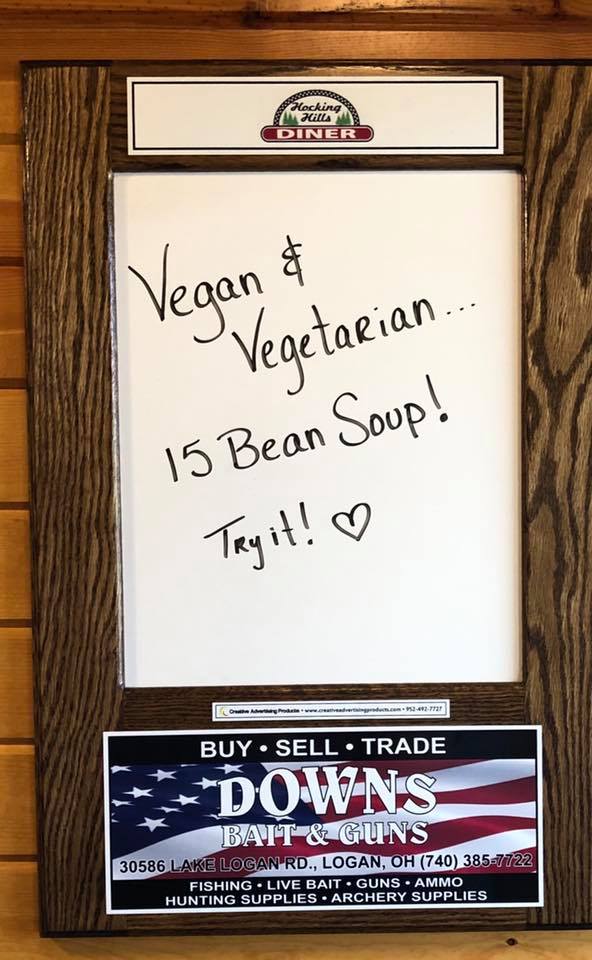 Hocking
Hills
DINER
Vegan &
Vegetarian...
15 Bean Soup!
Try it! ♡
Creative Advertising Products • www.creativeadvertisingproducts.com • 952-492-7727
BUY • SELL • TRADE
DOWNS
BAIT & GUNS
30586 LAKE LOGAN RD., LOGAN, OH (740) 385-7722
FISHING • LIVE BAIT • GUNS • AMMO
HUNTING SUPPLIES • ARCHERY SUPPLIES